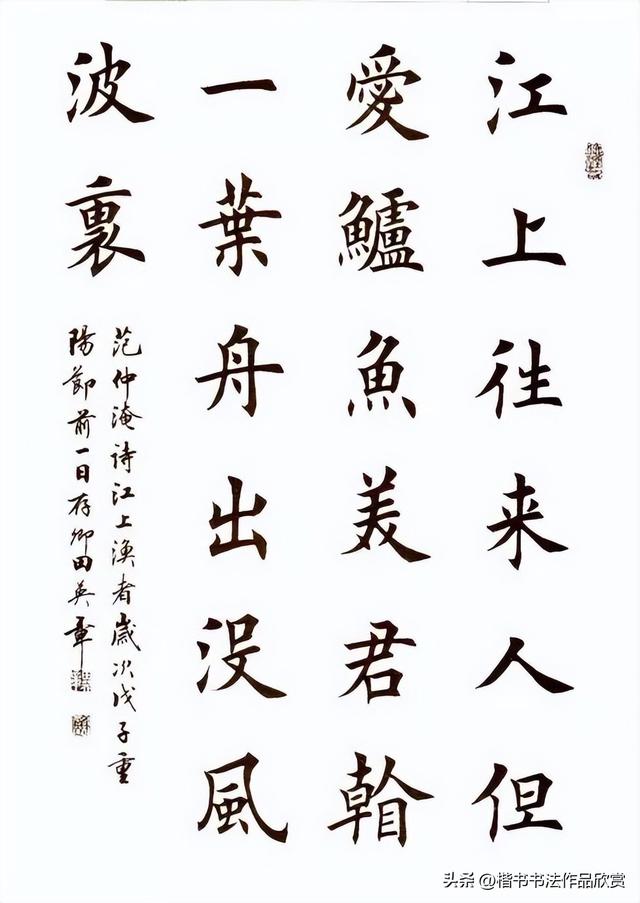 江上往来人但
愛鱸魚美君看
一葉舟出没風
波裏
范仲淹詩江上漁者歲次戊子重
陽節前一日存卿田英章
头条 @楷书书法作品欣赏